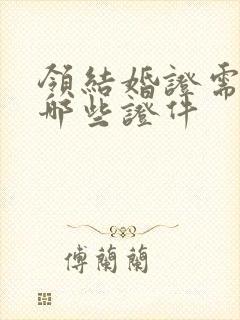 領結婚證需
哪些證件
傅蘭蘭